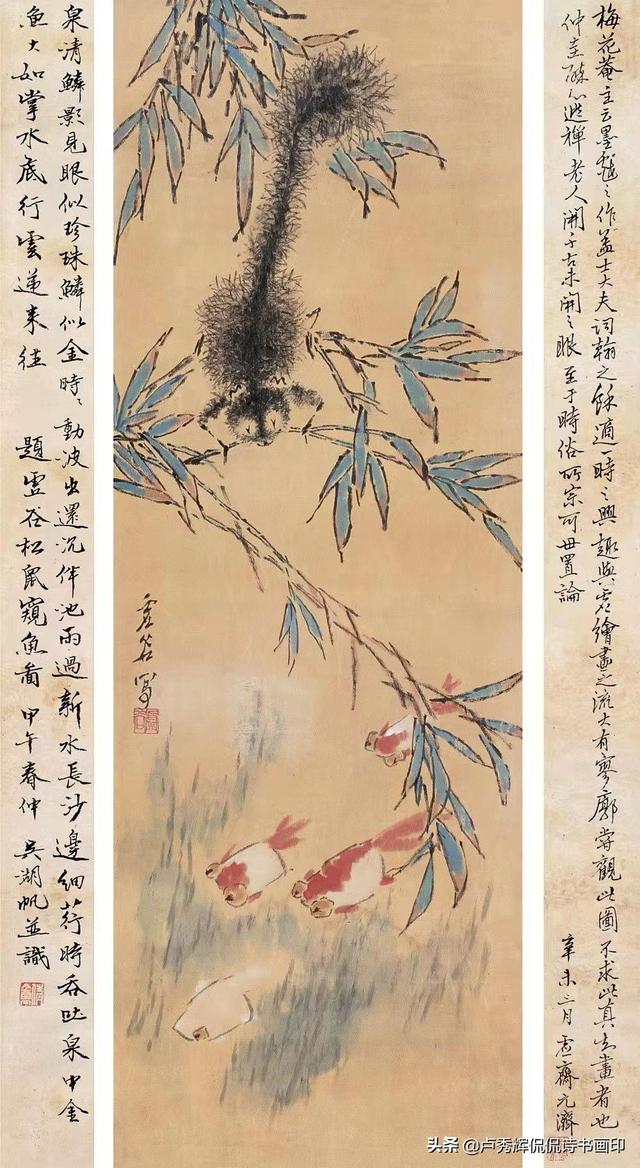 梅花菴主云墨戲之作蓋士大夫詞翰之餘適一時之興趣與夫繪畫之流大有寥廓嘗觀此圖不求此真畫者也
仲圭醉心逃禪老人開千古未開之眼至于時俗所宗可毋置論
辛未三月 虛齋元濟
虛谷寫
泉清鱗影見眼似珍珠鱗似金時〻動波出還沉伴池雨過新水長沙邊細荇時吞吐泉中金
魚大如掌水底行雲遞來往 題虛谷松鼠窺魚圖 甲午春仲 吳湖帆並識
头条 @卢秀辉侃侃诗书画印